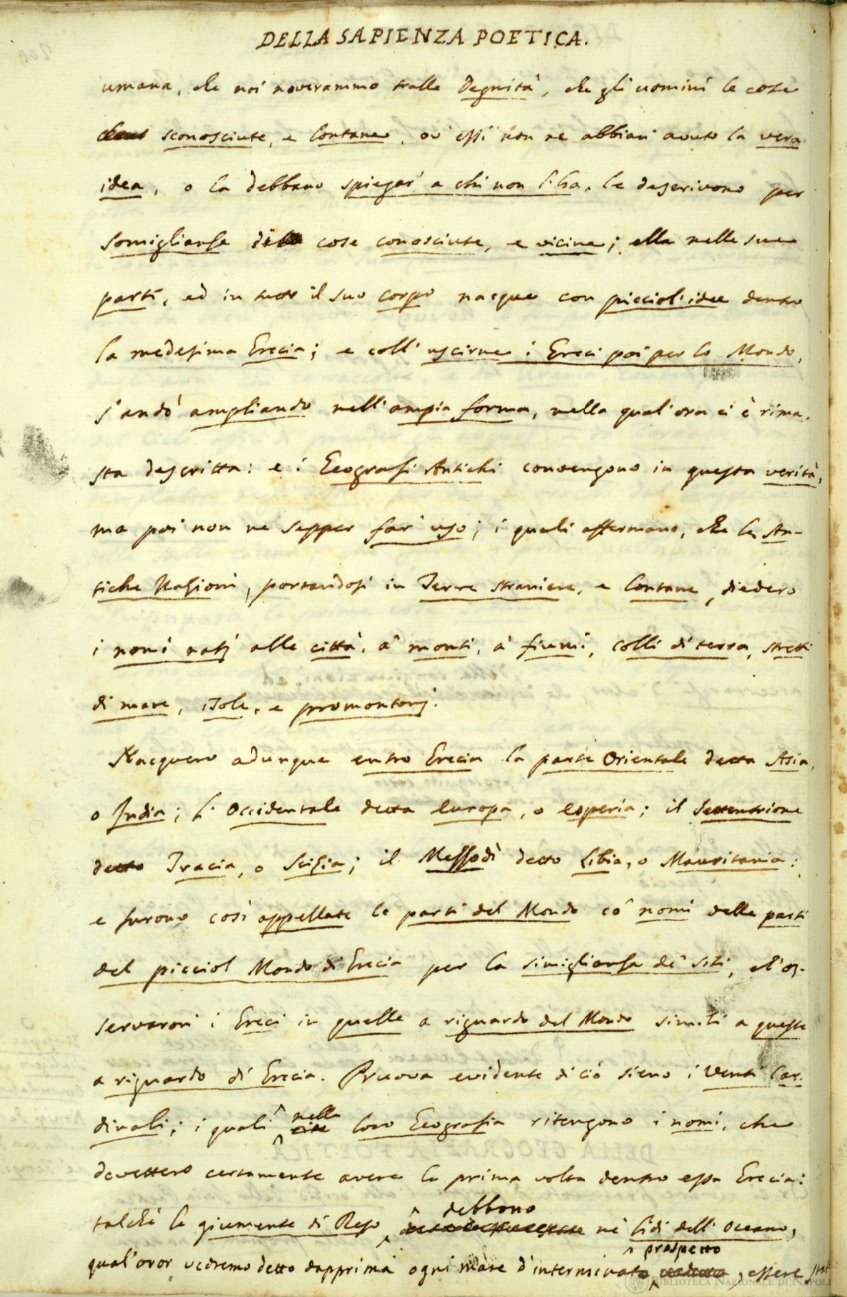 DELLA SAPIENZA POETICA.
umana, che noi noverammo tralle Degnità, che gli uomini le cose
sconosciute, e lontane, ov' essi non ne abbian avuto la vera
idea, o la debbano spiegar' a chi non l'ha, le descrivono per
somiglianze di cose conosciute, e vicine; ella nelle sue
parti, ed in tutt' il suo corpo nacque con picciol' idee dentro
la medesima Grecia; e coll' uscirne i Greci poi per lo Mondo,
s'andò ampliando nell' ampia forma, nella qual' ora ci è rima-
sta descritta: e i Geografi Antichi convengono in questa verità,
ma poi non ne sepper far' uso; i quali affermano, che le An-
tiche Nazioni, portandosi in Terre straniere, e lontane, diedero
i nomi natj alle città, a' monti, a' fiumi, colli di terra, stretti
di mare, isole, e promontorj.
Nacquero adunque entro Grecia la parte Orientale detta Asia,
o India; l' Occidentale detta Europa, o Esperia; il Settentrione
detto Tracia, o Scizia; il Mezzodì detto Libia, o Mauritania:
e furono così appellate le parti del Mondo co' nomi delle parti
del picciol Mondo di Grecia per la simiglianza de' siti, ch'os-
servaron i Greci in quelle a riguardo del Mondo simili a queste
a riguardo di Grecia. Pruova evidente di ciò sieno i Venti Car-
dinali; i quali nella loro Geografia ritengono i nomi, che
devettero certamente avere la prima volta dentro essa Grecia:
talchè le giumente di Reso debbono ne' lidi dell' Oceano,
qual' or or vedremo detto dapprima ogni mare d'interminato prospetto, essere
BIBLIOTECA NAZIONALE DI NAPOLI